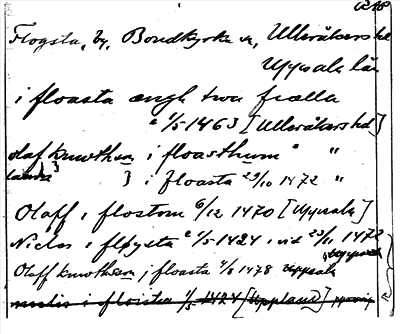 Flogsta, by, Bondkyrka sn, Ulleråkers hd
Uppsala län
i floasta ængh twa fiælla
2/5 1463 [Ulleråkers hd]
olaf knwthson i floasthum " "
laurens } i floasta 29/10 1472 "
Olaff i flostom 6/12 1470 [Uppsala]
Niclos i flpysta 2/5 1424, vid 23/11 1472
Uppsala
Olaff knwthson i floasta 4/8 1478 Uppsala
i floista 1/5 1424 [Uppland]